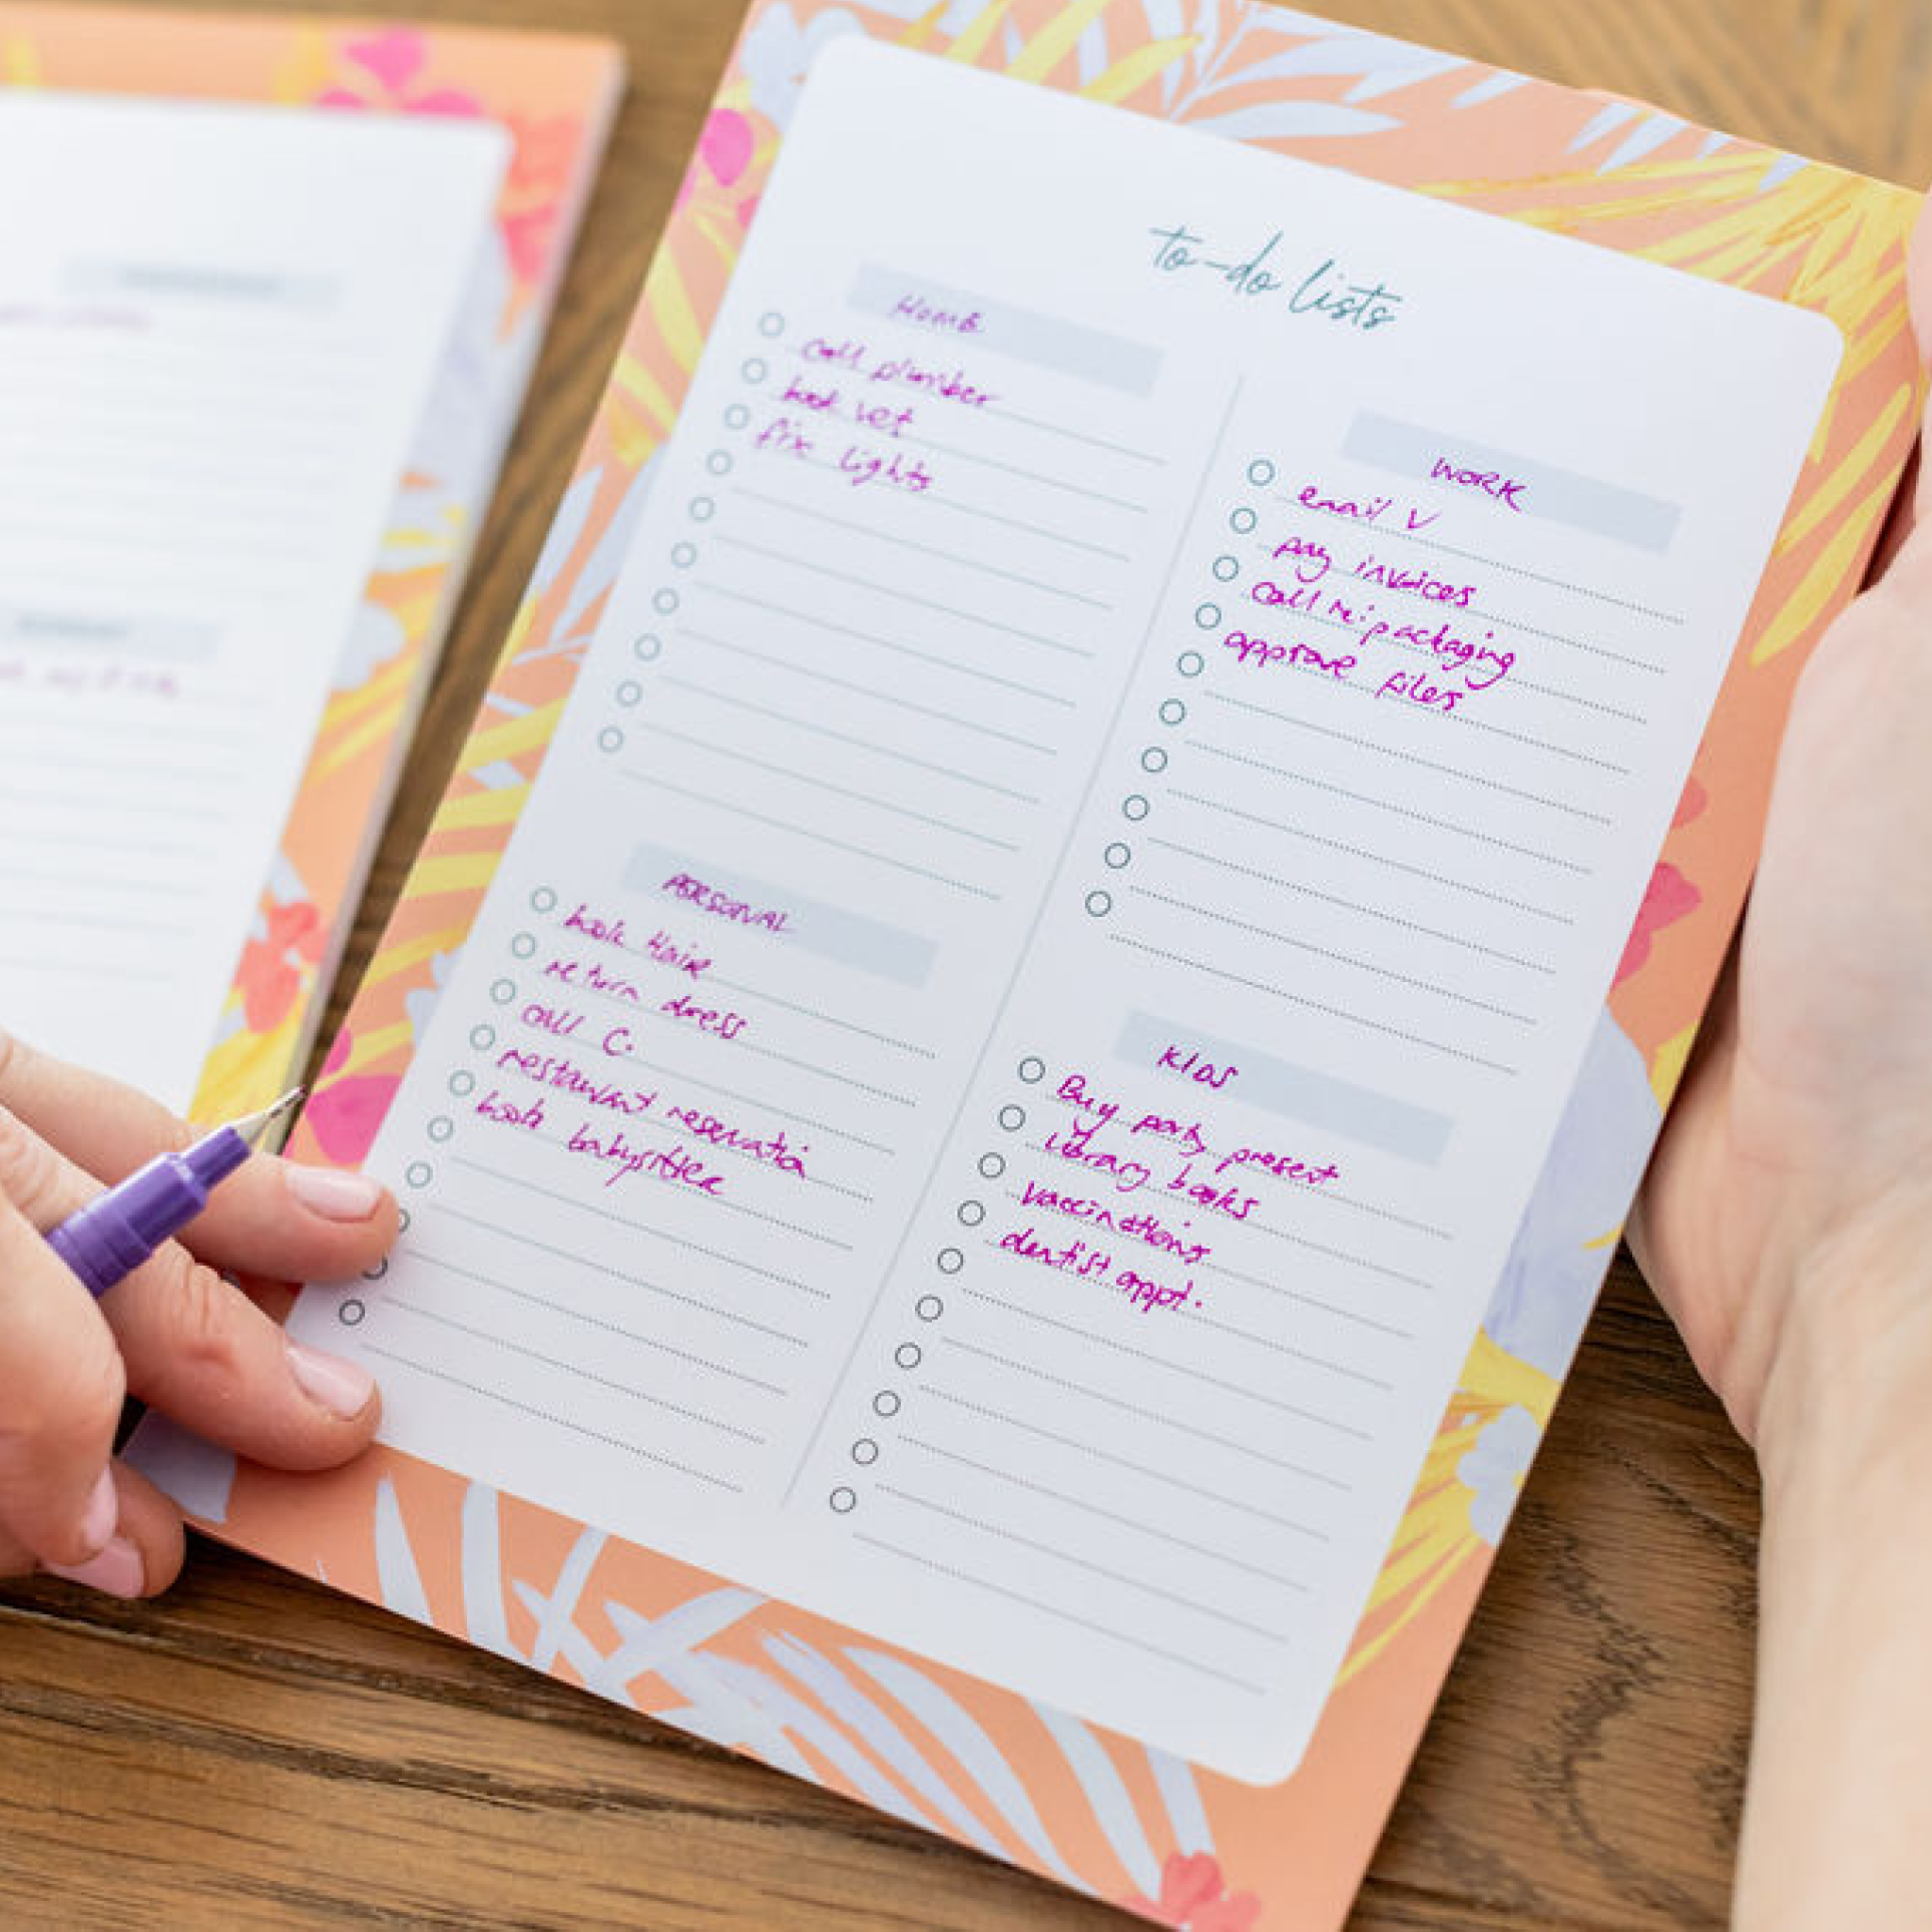 to-do lists
HOME
call plumber
book vet
fix lights
WORK
email V
pay invoices
call re: packaging
approve files
PERSONAL
book Hair
return dress
call C.
restaurant reservation
book babysitter
KIDS
Buy party present
library books
vaccinations
dentist appt.